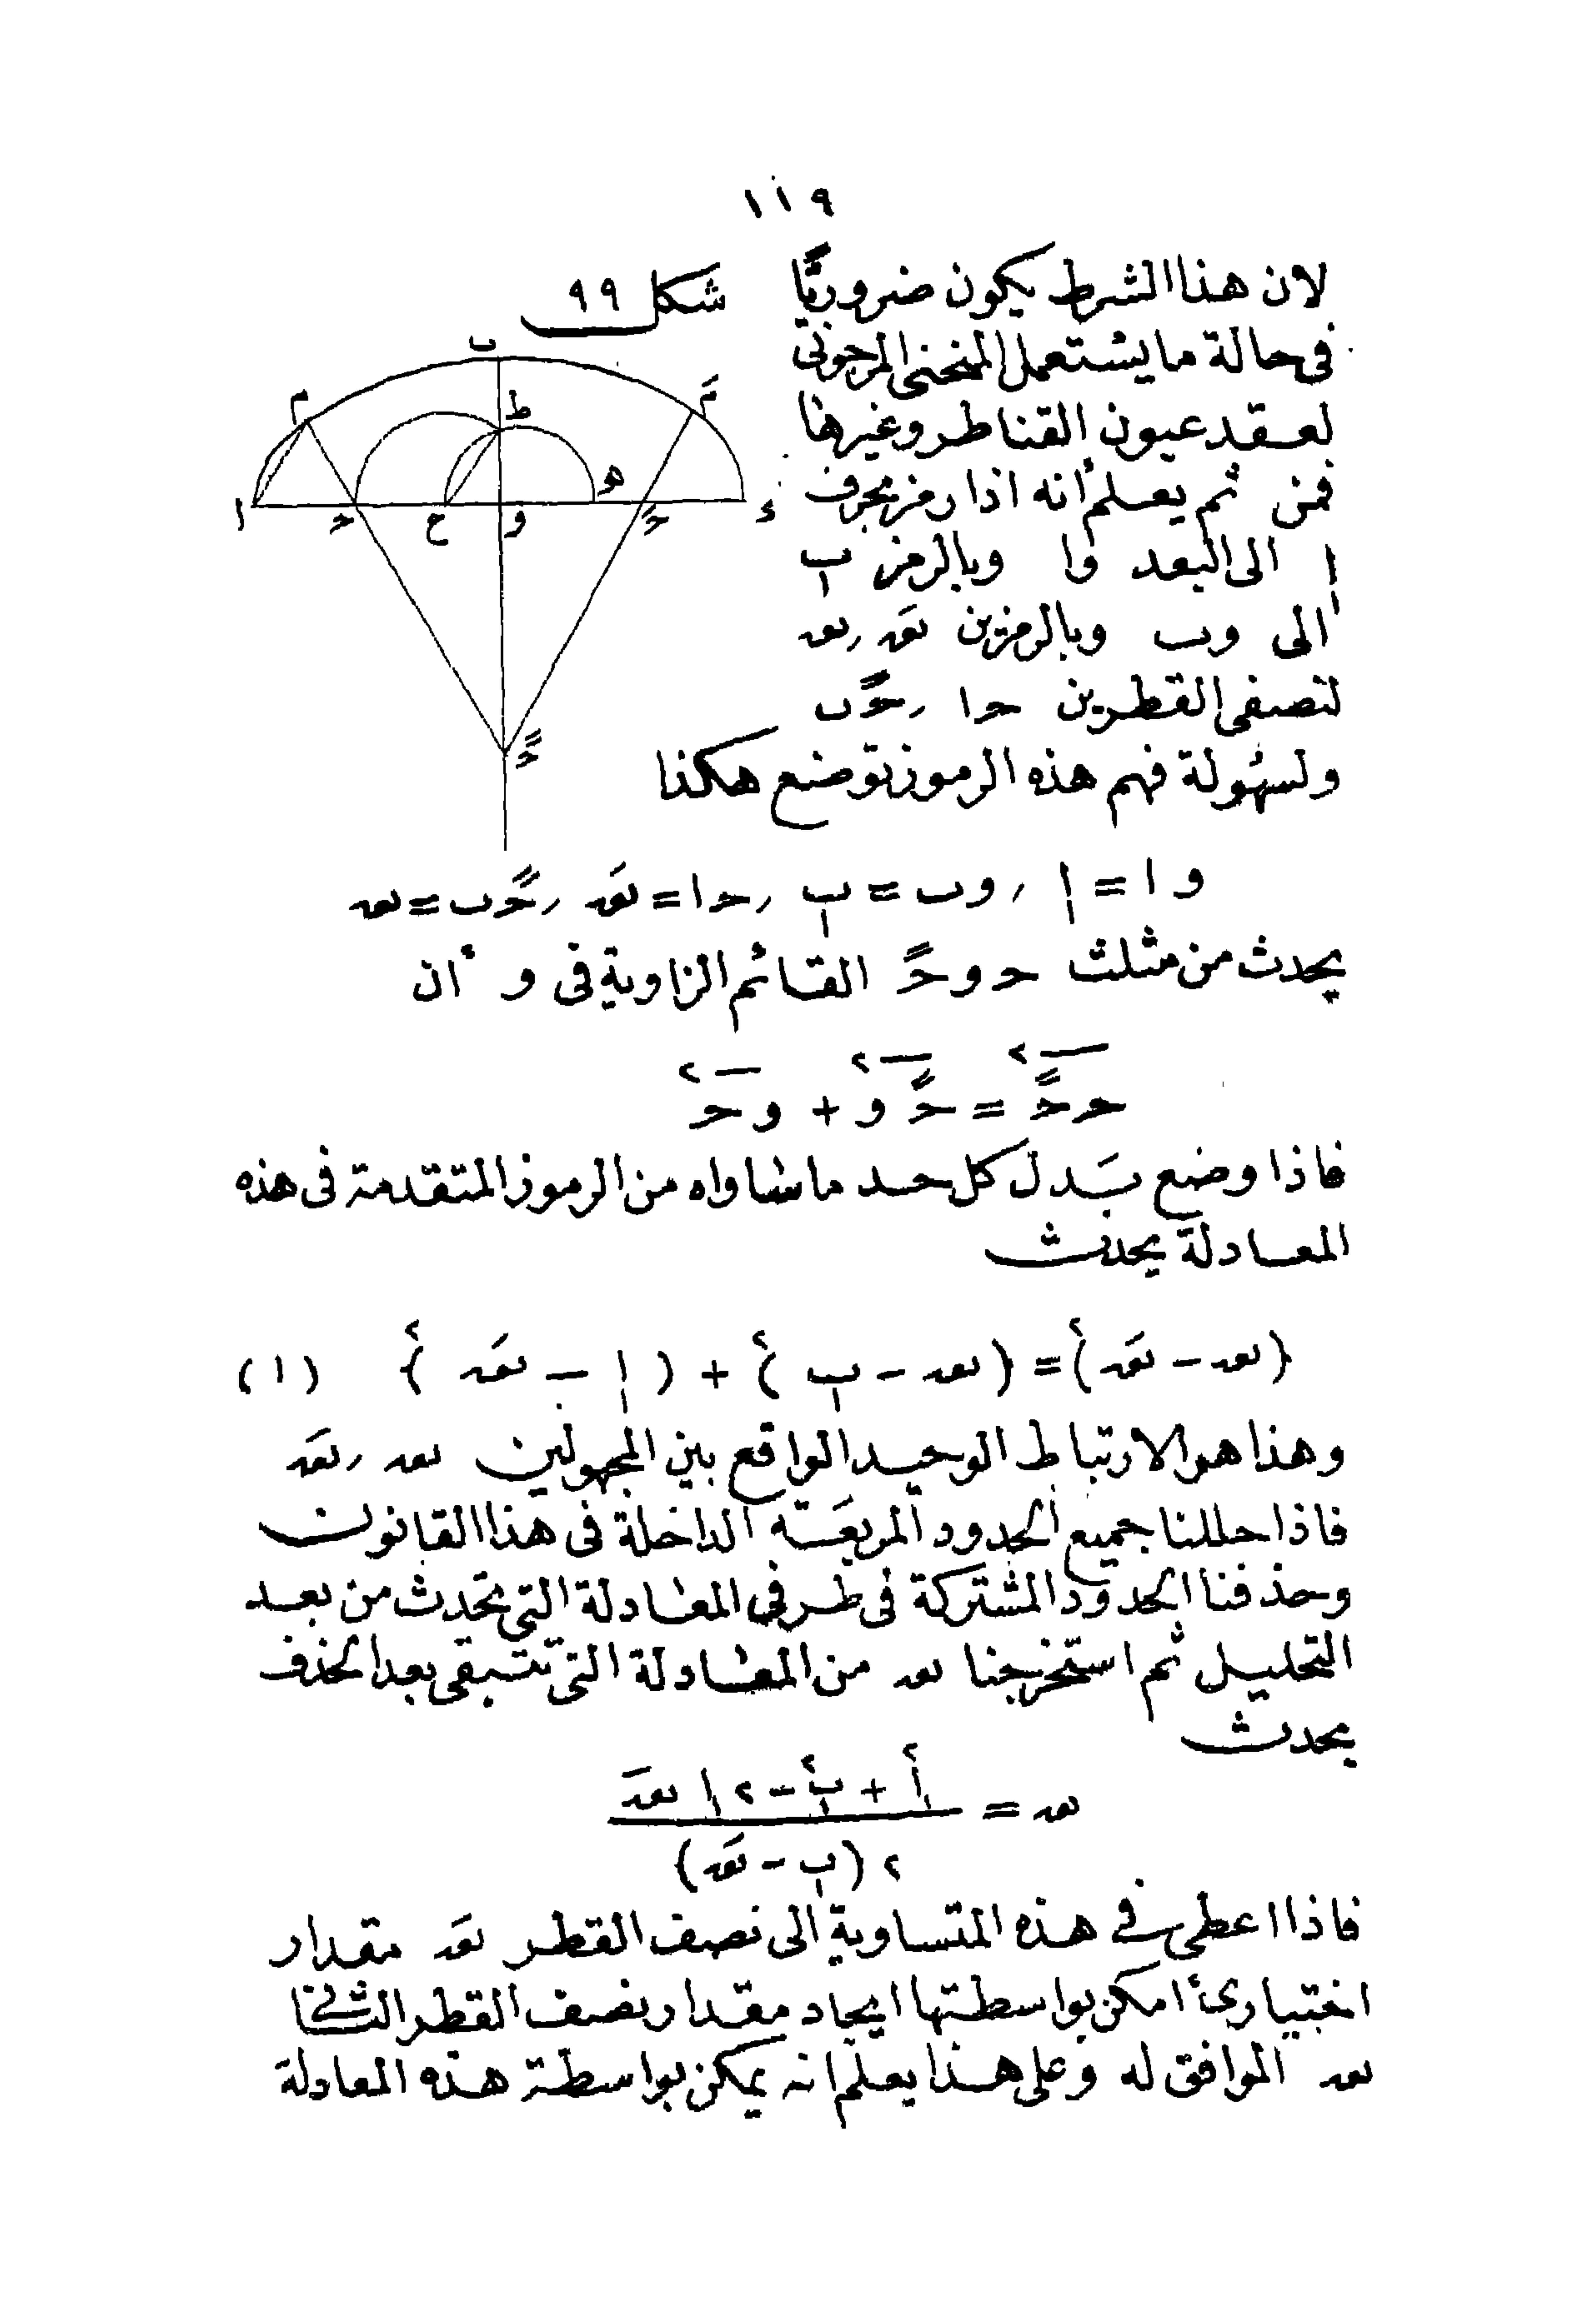 ١١٩
لان هذا الشرط يكون ضروريًا
شكل ٩٩
فى حالة ما يستعمل المنحنى المرجونى
لعقد عيون القناطر وغيرها
فمن ثم يعلم أنه اذا رمز بحرف
ا الى البعد وا وبالرمز ب
الى وب وبالرمزين نعَه ر نعه
لنصفى القطرين حا ر حًب
ولسهولة فهم هذه الرموز توضع هكذا
ب
م مَ
ط
ه
ا حـ ع و حَـ د
حً
وا = ا ر وب = ب ر حا = نعَه ر حًب = نعه
يحدث من مثلث حـ و حً القائم الزاوية فى و أن
حـحً٢ = حًو٢ + وحـ٢
فاذا وضع بَدل كل حد ماساواه من الرموز المتقدمة فى هذه
المعادلة يحدث
(نعه - نعَه)٢ = (نعه - ب)٢ + (ا - نعَه)٢ (١)
وهذا هو الارتباط الوحيد الواقع بين المجهولين نعه ر نعَه
فاذا حللنا جميع الحدود المربعَة الداخلة فى هذا القانون
وحذفنا الحدود المشتركة فى طرفى المعادلة التى تحدث من بعد
التحليل ثم استخرجنا نعه من المعادلة التى تتبقى بعد الحذف
يحدث
نعه = ا٢ + ب٢ - ٢ ا نعَه
٢ (ب - نعَه)
فاذا اعطى فى هذه المتساوية الى نصف القطر نعَه مقدار
اختيارىّ أمكن بواسطتها ايجاد مقدار نصف القطر الثانى
نعه الموافق له وعلى هذا يعلم انه يمكن بواسطة هذه المعادلة